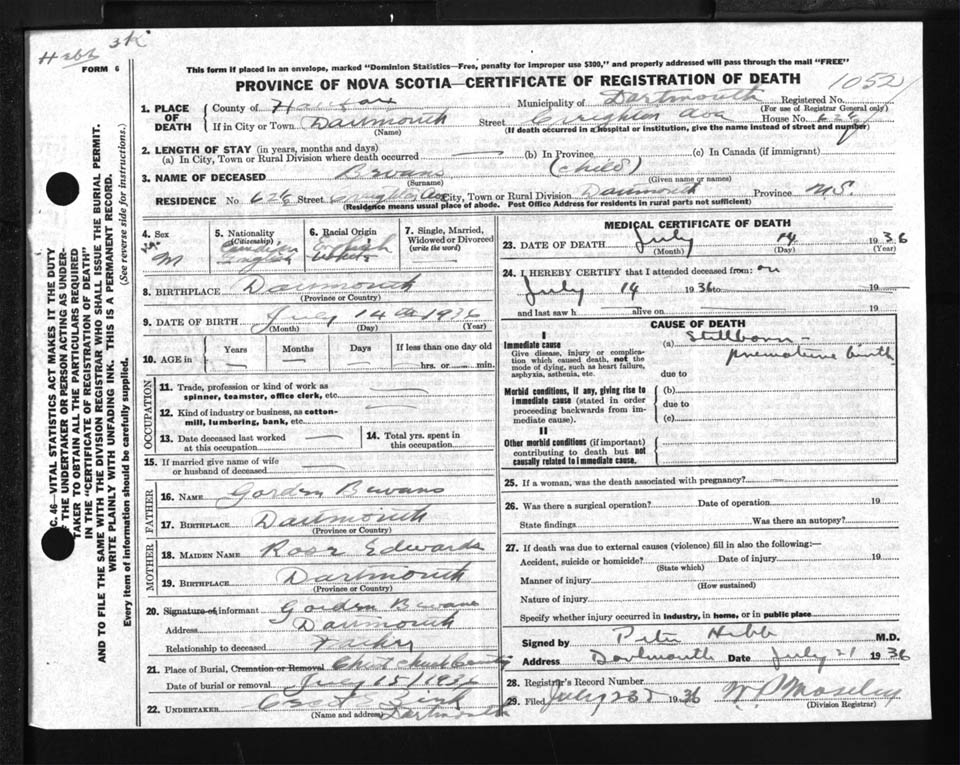 Hebb 3K
FORM 6
This form if placed in an envelope, marked "Dominion Statistics—Free, penalty for improper use $300," and properly addressed will pass through the mail "FREE"
PROVINCE OF NOVA SCOTIA—CERTIFICATE OF REGISTRATION OF DEATH
1. PLACE OF DEATH
County of Halifax Municipality of Dartmouth Registered No. 1052
(For use of Registrar General only)
If in City or Town Dartmouth Street Creighton Ave House No. 62½
(Name) (If death occurred in a hospital or institution, give the name instead of street and number)
2. LENGTH OF STAY (in years, months and days)
(a) In City, Town or Rural Division where death occurred — (b) In Province (c) In Canada (if immigrant)
3. NAME OF DECEASED Bevans (child)
(Surname) (Given name or names)
RESIDENCE No 62½ Street Creighton Ave City, Town or Rural Division Dartmouth Province N.S.
(Residence means usual place of abode. Post Office Address for residents in rural parts not sufficient)
4. Sex M
5. Nationality (Citizenship) Canadian English
6. Racial Origin English
7. Single, Married, Widowed or Divorced (write the word) —
8. BIRTHPLACE Dartmouth
(Province or Country)
9. DATE OF BIRTH July 14th 1936
(Month) (Day) (Year)
10. AGE in Years Months Days If less than one day old
hrs. or min.
OCCUPATION
11. Trade, profession or kind of work as spinner, teamster, office clerk, etc. —
12. Kind of industry or business, as cotton-mill, lumbering, bank, etc. —
13. Date deceased last worked at this occupation —
14. Total yrs. spent in this occupation
15. If married give name of wife or husband of deceased —
FATHER
16. NAME Gordon Bevans
17. BIRTHPLACE Dartmouth
(Province or Country)
MOTHER
18. MAIDEN NAME Rose Edwards
19. BIRTHPLACE Dartmouth
(Province or Country)
20. Signature of informant Gordon Bevans
Address Dartmouth
Relationship to deceased Father
21. Place of Burial, Cremation or Removal Christ Church Cemetery
Date of burial or removal July 15/1936
22. UNDERTAKER
(Name and address) Dartmouth
MEDICAL CERTIFICATE OF DEATH
23. DATE OF DEATH July 14 1936
(Month) (Day) (Year)
24. I HEREBY CERTIFY that I attended deceased from: on
July 14 1936 to 19
and last saw h alive on 19
CAUSE OF DEATH
I
Immediate cause
Give disease, injury or complication which caused death, not the mode of dying, such as heart failure, asphyxia, asthenia, etc.
(a) Stillborn –
premature birth
due to
Morbid conditions, if any, giving rise to immediate cause (stated in order proceeding backwards from immediate cause).
(b)
due to
(c)
II
Other morbid conditions (if important) contributing to death but not causally related to immediate cause.
25. If a woman, was the death associated with pregnancy? —
26. Was there a surgical operation? Date of operation 19
State findings Was there an autopsy?
27. If death was due to external causes (violence) fill in also the following:—
Accident, suicide or homicide? Date of injury 19
(State which)
Manner of injury
(How sustained)
Nature of injury
Specify whether injury occurred in industry, in home, or in public place
Signed by Peter Hebb M.D.
Address Dartmouth Date July 21 1936
28. Registrar's Record Number
29. Filed July 23 1936 W. P. Moseley
(Division Registrar)
C. 46—VITAL STATISTICS ACT MAKES IT THE DUTY
OF THE UNDERTAKER OR PERSON ACTING AS UNDER-
TAKER TO OBTAIN ALL THE PARTICULARS REQUIRED
IN THE "CERTIFICATE OF REGISTRATION OF DEATH"
AND TO FILE THE SAME WITH THE DIVISION REGISTRAR WHO SHALL ISSUE THE BURIAL PERMIT.
WRITE PLAINLY WITH UNFADING INK. THIS IS A PERMANENT RECORD.
Every item of information should be carefully supplied. (See reverse side for instructions.)